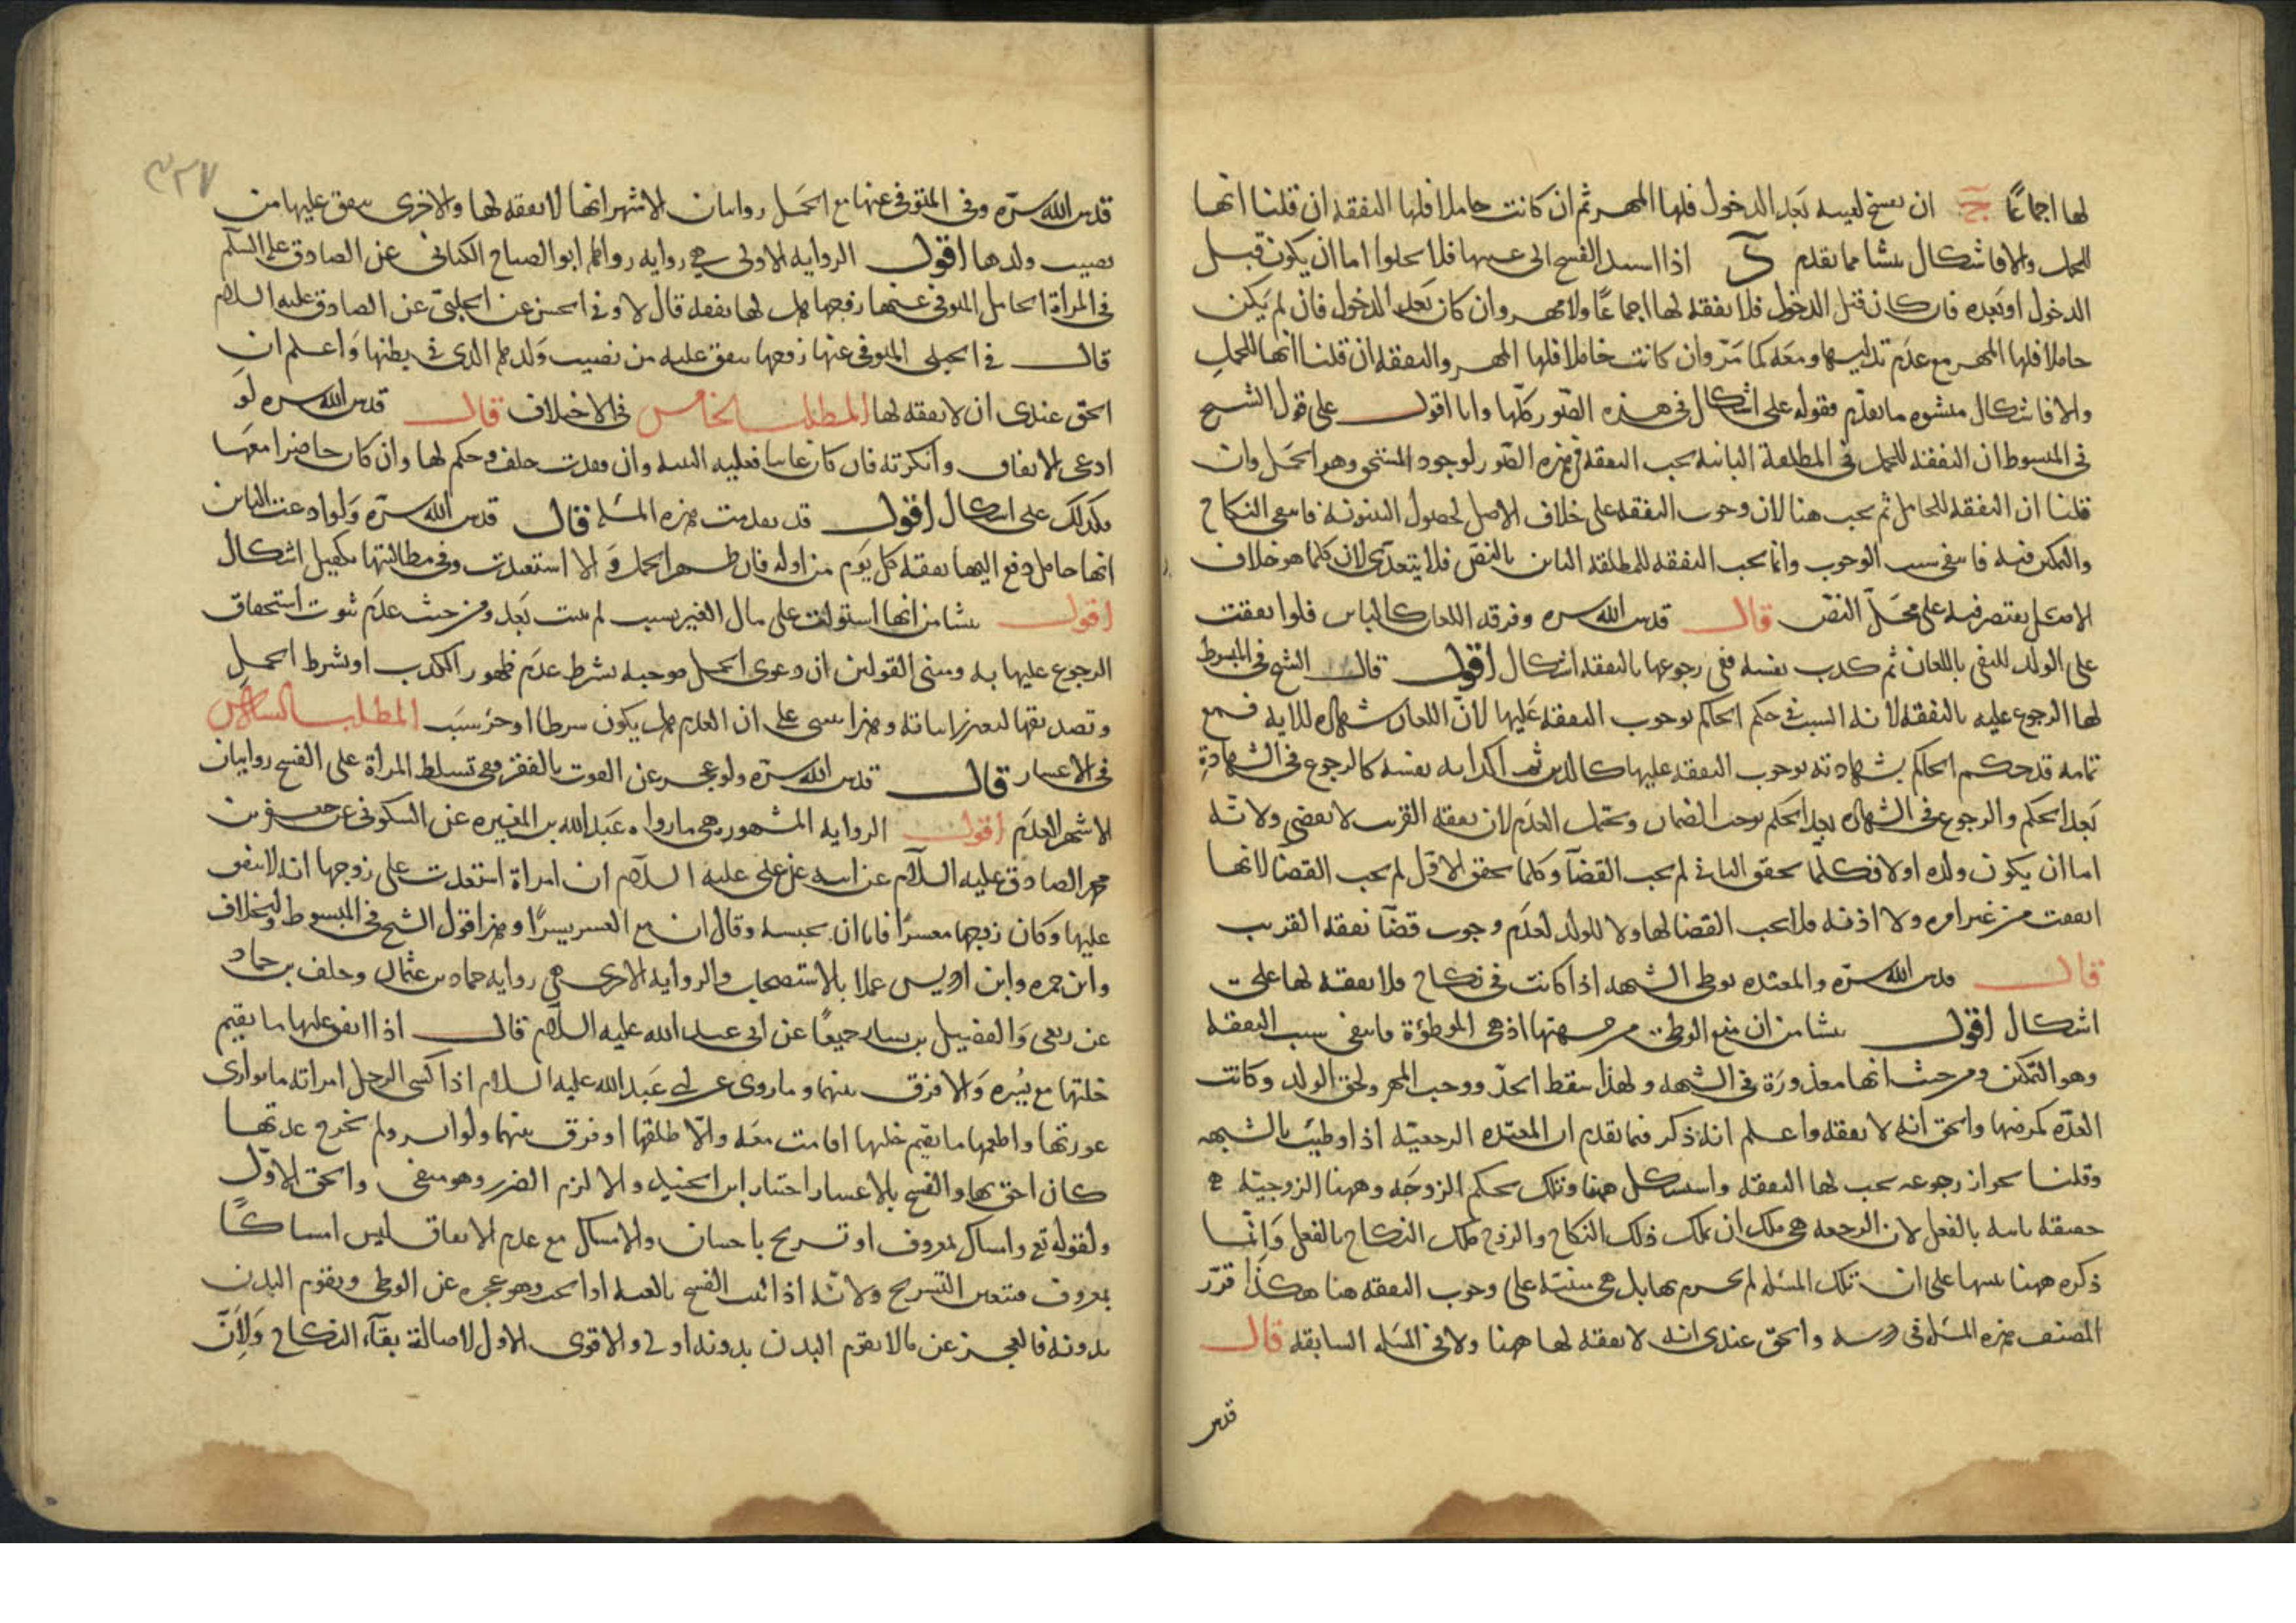 لها اجماعا ج ان يفسخ لعيبه بعد الدخول فلها المهر ثم ان كانت حاملا فلها النفقة ان قلنا انها
للحمل والا فاشكال ينشا مما تقدم د اذا استند الفسخ الى عيبها فلا يخلوا اما ان يكون قبل
الدخول او بعده فان كان قبل الدخول فلا نفقة لها اجماعًا ولا مهر وان كان بعد الدخول فان لم يكن
حاملا فلها المهر مع عدم تدليسها ومعه كما مرّ وان كانت حاملا فلها المهر والنفقة ان قلنا انها للحمل
والا فاشكال منشوه ما تقدم فقوله على اشكال في هذه الصّور كلّها وانا اقول على قول الشيخ
في المبسوط ان النفقة للحمل في المطلقة البائنة يجب النفقة في هذه الصّور لوجود المستحق وهو الحمل وان
قلنا ان النفقة للحامل ثم يجب هنا لان وجوب النفقة على خلاف الاصل لحصول البينونة فانتفى النكاح
والتمكين فيه فانتفى سبب الوجوب وانما يجب النفقة للمطلقة البائن بالنصّ فلا يتعدّى لان كلما هو خلاف
الاصل يقتصر فيه على محلّ النصّ قال قدس الله سره وفرقة اللعان كالبائن فلو انفقت
على الولد المنفي باللعان ثم كذب نفسه ففي رجوعها بالنفقة اشكال اقول قال الشيخ في المبسوط
لها الرجوع عليه بالنفقة لانه السبب في حكم الحاكم بوجوب النفقة عليها لانّ اللعان شهادة للاية فمع
تمامه قد حكم الحاكم بشهادته بوجوب النفقة عليها كالدين ثم اكذابه نفسه كالرجوع في الشهادةِ
بعد الحكم والرجوع في الشهادة بعد الحكم يوجب الضمان ويحتمل العدم لان نفقة القريب لا تقضى ولانّه
اما ان يكون ولده اولا فكلما تحقق الثاني لم يجب القضآ وكلما تحقق الاول لم يجب القضا لانها
انفقت من غير امره ولا اذنه فلا يجب القضا لها ولا للولد لعدم وجوب قضآ نفقة القريب
قال قدس الله سرّه والمعتدة بوطى الشبهة اذا كانت في نكاح فلا نفقة لها على
اشكال اقول ينشا من ان منع الوطى من جهتها اذ هي الموطؤة فانتفى سبب النفقة
وهو التمكين ومن حيث انها معذورَة في الشبهة ولهذا سقط الحدّ ووجب المهر ولحق الولد وكانت
العدّة كمرضها والحق انه لا نفقة واعلم انه ذكر فيما تقدم ان المعتدة الرجعيّة اذا وطيت بالشبهه
وقلنا بجواز رجوعه يجب لها النفقة واستشكل ههنا وتلك بحكم الزوجَة وههنا الزوجيّة
حقيقة ثابتة بالفعل لان الرجعة هي ملك ان يملك ذلك النكاح والزوج ملك النكاح بالفعل وَانّما
ذكره ههنا تنبيها على ان تلك المسئلة لم يجزم بها بل هي مبنيّة على وجوب النفقة هنا هكذا قرّر
المصنف هذه المسئلة في درسه والحق عندى انه لا نفقة لها ههنا ولا في المسئلة السابقة قال
قدس
٣٢٧
قدس الله سرّه وفي المتوفى عنها مع الحمل روايتان الاشهر انها لا نفقة لها والاخرى ينفق عليها من
نصيب ولدها اقول الرواية الاولى هي رواية رواها ابو الصباح الكناني عن الصادق عليه السلم
في المراة الحامل المتوفى عنها زوجها هل لها نفقة قال لا وفي الحسن عن الحلبيّ عن الصادق عليه السلام
قال في الحبلى المتوفى عنها زوجها ينفق عليه من نصيب وَلدها الذى في بطنها وَاعلم ان
الحق عندى ان لا نفقة لها المطلب الخامس في الاختلاف قال قدس الله سره لَو
ادعى الانفاق وانكرته فان كان غائبا فعليه البينة وان فقدت حلفت وحكم لها وان كان حاضرا معها
فكذلك على اشكال اقول قد تقدمت هذه المسئلة قال قدس الله سرّه ولو ادعت البائن
انها حامل دفع اليها نفقة كل يوم من اوله فان ظهر الحمل وَالا استعيدت وفي مطالبتها بكفيل اشكال
اقول ينشا من انها استولت على مال الغير بسبب لم يثبت بَعد ومن حيث عدم ثبوت استحقاق
الرجوع عليها به ومبنى القولين ان دعوى الحمل موجبة بشرط عدم ظهور الكذب او بشرط الحمل
وتصديقها لتعذر اثباته وهذا مبنى على ان العدم هل يكون شرطا او جزء سبب المطلب السادس
في الاعسار قال قدس الله سرّه ولو عجز عن القوت بالفقر ففي تسلط المراة على الفسخ روايتان
الاشهر العدَم اقول الرواية المشهورة هي ما رواه عَبد الله بن المغيرة عن السكوني عن جعفر بن
محمد الصادق عليه السلام عن ابيه عن علي عليه السلام ان امراة استعدت على زوجها انه لا ينفق
عليها وكان زوجها معسرًا فابى ان يحبسه وقال ان مع العسر يسرًا وهذا قول الشيخ في المبسوط والخلاف
وابن حمزه وابن ادريس عملا بالاستصحاب والرواية الاخرى هي رواية حماد بن عثمان وخلف بن حماد
عن ربعي وَالفضيل بن يسار جميعًا عن ابي عبد الله عليه السلام قال اذا انفق عليها ما يقيم
خلتها مع يُسره وَالا فرق بينهما وما روى عن ابي عَبد الله عليه السلام اذا كسى الرجل امراته ما يوارى
عورتها واطعمها ما يقيم خلتها اقامت معه والّا طلقها او فرق بينهما ولو ايسر ولم تخرج عدتها
كان احق بها والفسخ بالاعسار اختيار ابن الجنيد والا لزم الضرر وهو منفى والحق الاوّل
ولقوله تع وامساك بمعروف او تسريح باحسان والامساك مع عدم الانفاق ليس امساكًا
بمعروف فتتعين التسريح ولانّه اذا ثبت الفسخ بالعنة او الجب وهو عجزه عن الوطى ويقوم البدن
بدونه فالعجز عن ما لا يقوم البدن بدونه اولى والاقوى الاول لاصالة بقآء النكاح وَلِانّ